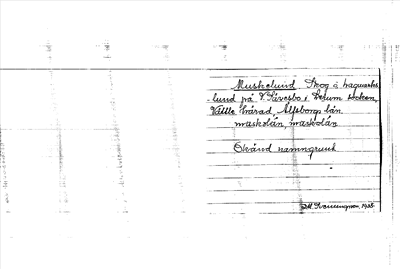 Muskelund Skog å hagmarks
lund på V. Tåvesbo i Lerum socken,
Vättle härad, Älfsborgs län.
maskolán, maskolán
Okänd namngrund
1928